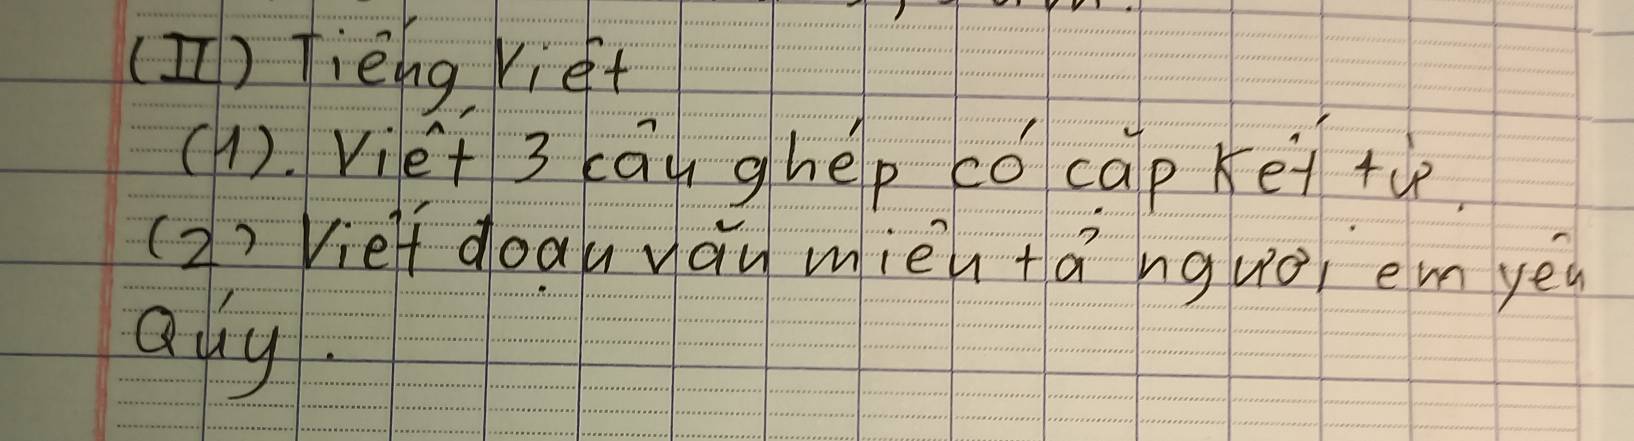 (II) Tiếng Việt
(1). Viết 3 câu ghép có cặp kết từ.
(2) Viết đoạn văn miêu tả người em yêu
Quý.